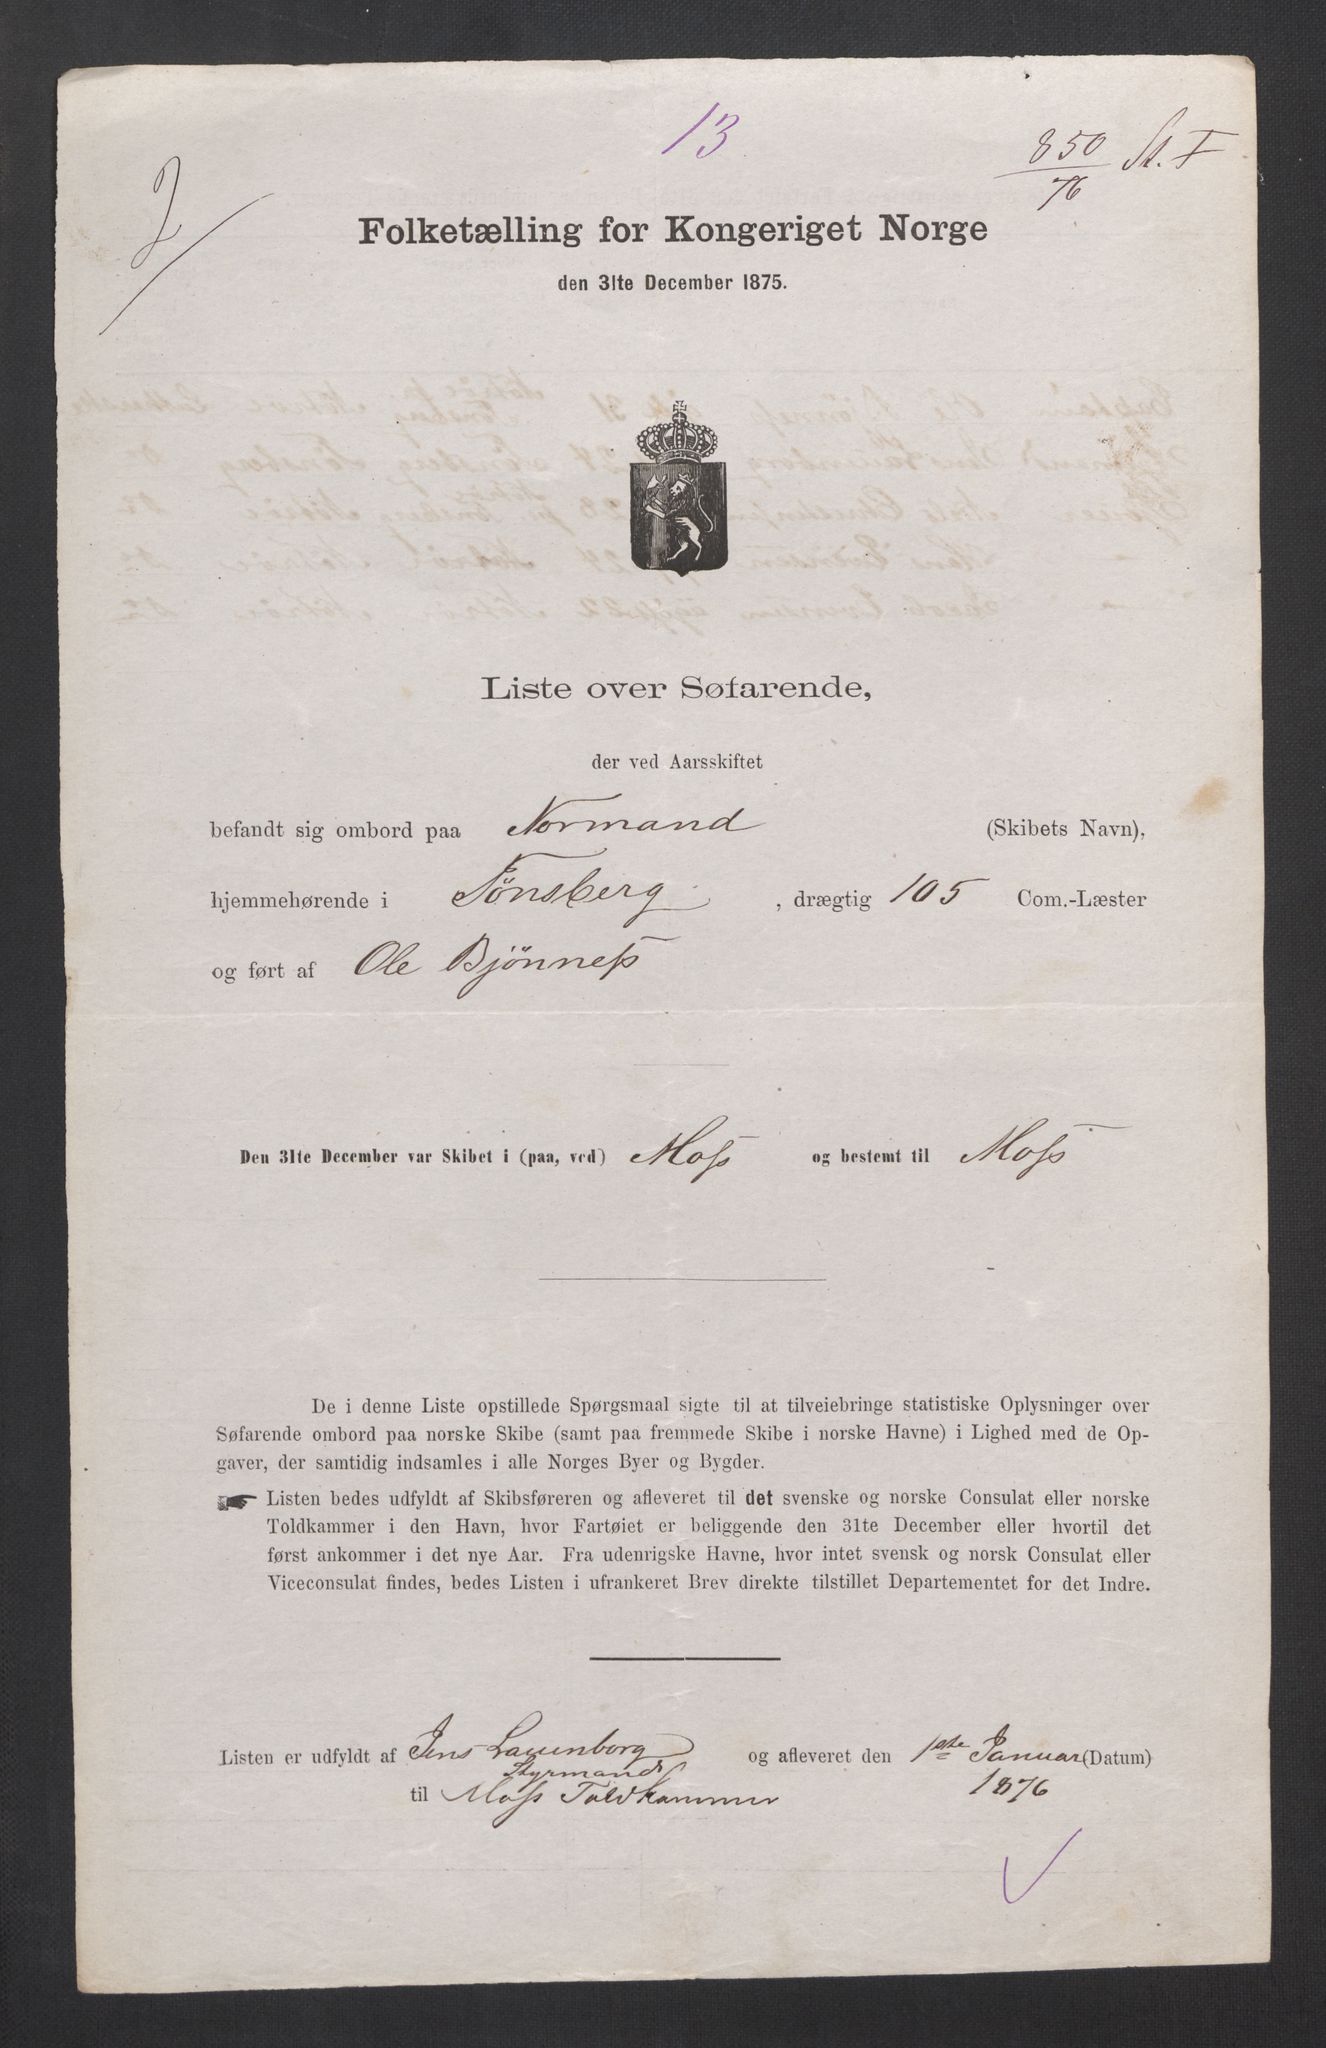 13
850
76 St. F
2
Folketælling for Kongeriget Norge
den 31te December 1875.
Liste over Søfarende,
der ved Aarsskiftet
befandt sig ombord paa Normand (Skibets Navn),
hjemmehørende i Tönsberg , drægtig 105 Com.-Læster
og ført af Ole Bjönness
Den 31te December var Skibet i (paa, ved) Moss og bestemt til Moss
De i denne Liste opstillede Spørgsmaal sigte til at tilveiebringe statistiske Oplysninger over
Søfarende ombord paa norske Skibe (samt paa fremmede Skibe i norske Havne) i Lighed med de Op-
gaver, der samtidig indsamles i alle Norges Byer og Bygder.
Listen bedes udfyldt af Skibsføreren og afleveret til det svenske og norske Consulat eller norske
Toldkammer i den Havn, hvor Fartøiet er beliggende den 31te December eller hvortil det
først ankommer i det nye Aar. Fra udenrigske Havne, hvor intet svensk og norsk Consulat eller
Viceconsulat findes, bedes Listen i ufrankeret Brev direkte tilstillet Departementet for det Indre.
Listen er udfyldt af Jens Lauenborg og afleveret den 1ste Januar (Datum)
Styrmand
til Moss Toldkammer 1876